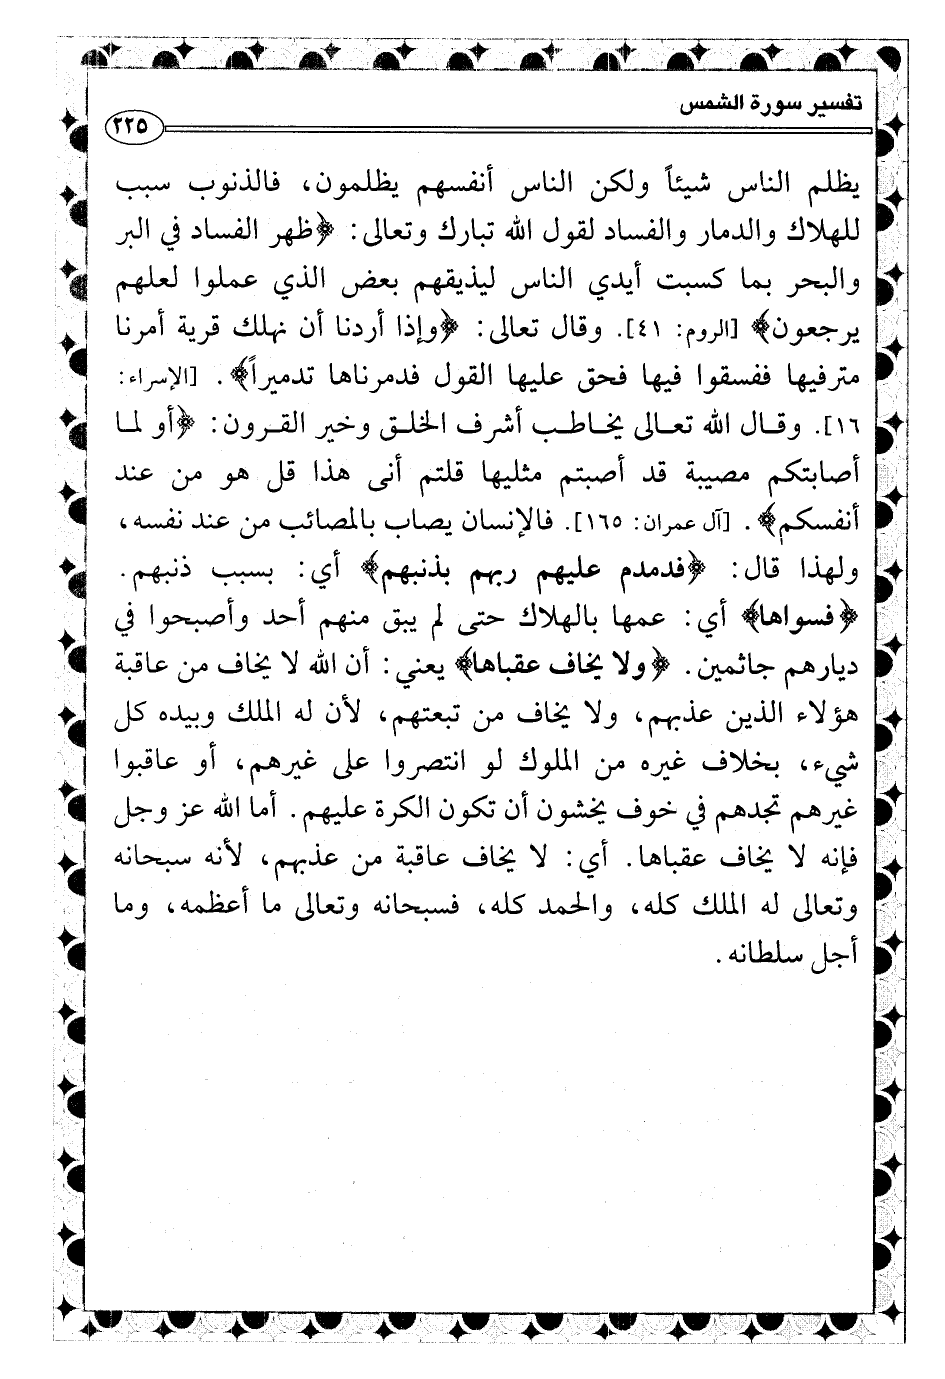 تفسير سورة الشمس
٢٢٥
يظلم الناس شيئاً ولكن الناس أنفسهم يظلمون، فالذنوب سبب
للهلاك والدمار والفساد لقول الله تبارك وتعالى: ﴿ظهر الفساد في البر
والبحر بما كسبت أيدي الناس ليذيقهم بعض الذي عملوا لعلهم
يرجعون﴾ [الروم: ٤١]. وقال تعالى: ﴿وإذا أردنا أن نهلك قرية أمرنا
مترفيها ففسقوا فيها فحق عليها القول فدمرناها تدميراً﴾. [الإسراء:
١٦]. وقال الله تعالى يخاطب أشرف الخلق وخير القرون: ﴿أو لما
أصابتكم مصيبة قد أصبتم مثليها قلتم أنى هذا قل هو من عند
أنفسكم﴾. [آل عمران: ١٦٥]. فالإنسان يصاب بالمصائب من عند نفسه،
ولهذا قال: ﴿فدمدم عليهم ربهم بذنبهم﴾ أي: بسبب ذنبهم.
﴿فسواها﴾ أي: عمها بالهلاك حتى لم يبق منهم أحد وأصبحوا في
ديارهم جاثمين. ﴿ولا يخاف عقباها﴾ يعني: أن الله لا يخاف من عاقبة
هؤلاء الذين عذبهم، ولا يخاف من تبعتهم، لأن له الملك وبيده كل
شيء، بخلاف غيره من الملوك لو انتصروا على غيرهم، أو عاقبوا
غيرهم تجدهم في خوف يخشون أن تكون الكرة عليهم. أما الله عز وجل
فإنه لا يخاف عقباها. أي: لا يخاف عاقبة من عذبهم، لأنه سبحانه
وتعالى له الملك كله، والحمد كله، فسبحانه وتعالى ما أعظمه، وما
أجل سلطانه.